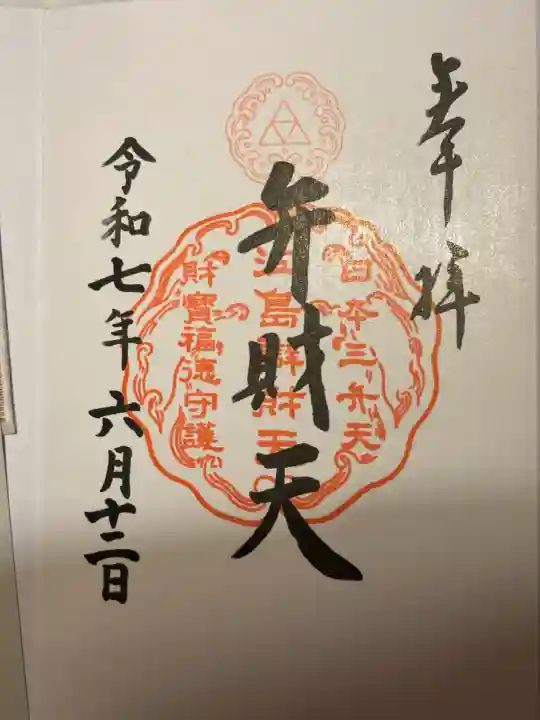 奉拝
弁財天
日本三弁天
江島辨財天
財寳福徳守護
令和七年六月十二日